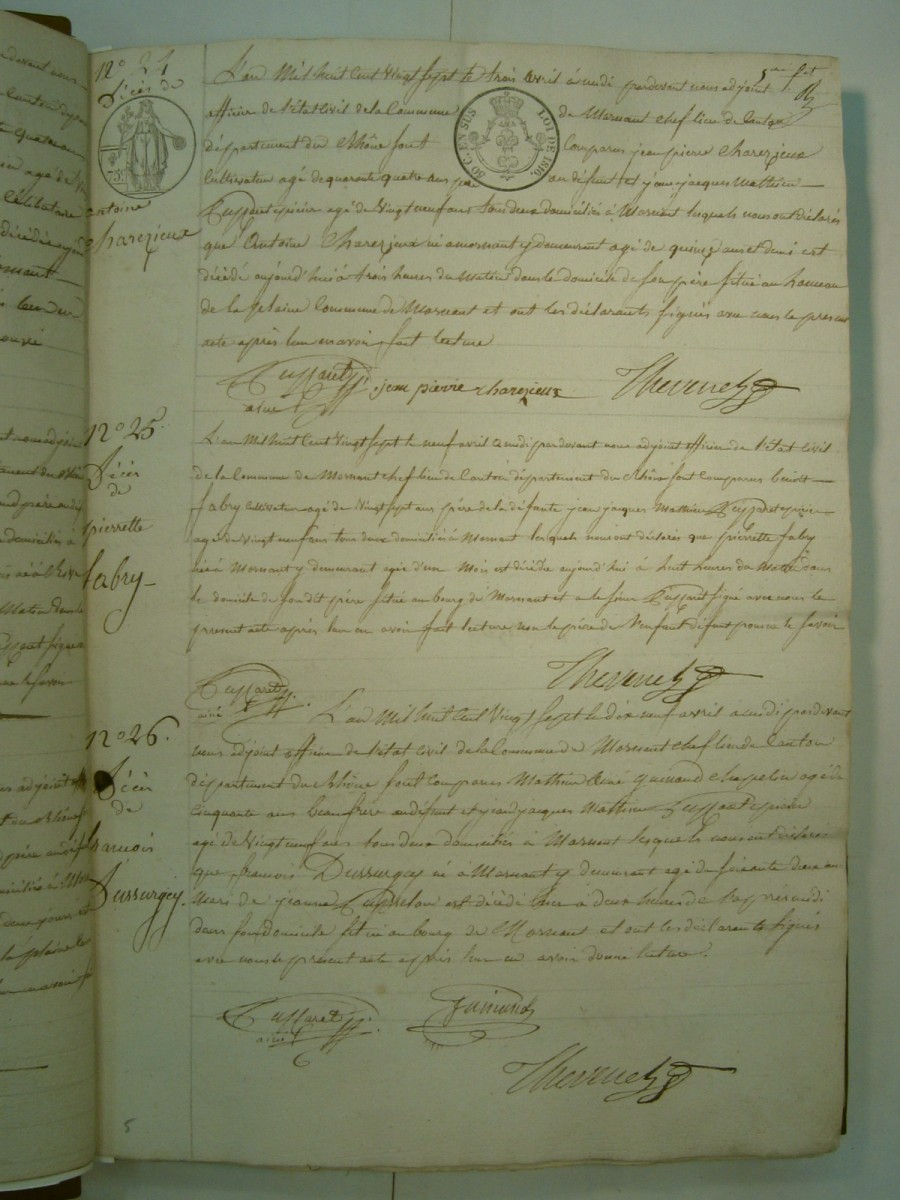 N° 24
Décès de
antoine
Charezieux
L'an Mil huit Cent Vingt Sept le trois avril à midi pardevant nous adjoint
officier de l'état civil de la Commune de Mornant chef lieu de Canton
département du Rhône sont Comparus jean pierre Charezieux
Cultivateur agé de quarante quatre ans du défunt et jean jacques Mathieu
épicier agé de Vingt neuf ans tous deux domiciliés à Mornant lesquels nous ont déclarés
que Antoine Charezieux né a mornant y demeurant agé de quinze ans et demi est
décédé aujourd'hui à trois heures du Matin dans le domicile de son père situé au hameau
de la plaine Commune de Mornant et ont les déclarants signés avec nous le présent
acte après leur en avoir fait lecture
jean pierre charezieux
Thevenet
50 C. EN SUS
LOI DE 1816.
N° 25.
Décès
de
pierrette
fabry
L'an Mil huit Cent Vingt Sept le neuf avril a midi pardevant nous adjoint officier de l'état civil
de la Commune de Mornant chef lieu de Canton département du Rhône sont Comparus benoit
fabry Cultivateur agé de Vingt Sept ans père de la défunte jean jacques Mathieu épicier
agé de Vingt neuf ans tous deux domiciliés à Mornant lesquels nous ont déclarés que pierrette fabry
née à Mornant y demeurant agée d'un Mois est décédée aujourd'hui à huit heures du Matin dans
le domicile de son dit père situé au bourg de Mornant et a le sieur signé avec nous le
present acte après leur en avoir fait lecture non le père de l'enfant défunt pour ne le savoir
Thevenet
N° 26.
Décès
de
francois
Dussurgey.
L'an Mil huit Cent Vingt Sept le dix neuf avril a midi pardevant
nous adjoint officier de l'état civil de la Commune de Mornant chef lieu de Canton
département du Rhône sont Comparus Mathieu Guinand Chapelier agé de
cinquante ans beau frère au défunt et jean jacques Mathieu épicier
agé de Vingt neuf ans tous deux domiciliés à Mornant lesquels nous ont déclarés
que francois Dussurgey né à Mornant y demeurant agé de soixante deux ans
Mari de jeanne est décédé hier à deux heures de l'après midi
dans son domicile situé au bourg de Mornant et ont les déclarants signés
avec nous le present acte après leur en avoir donné lecture.
Guinand
Thevenet
5